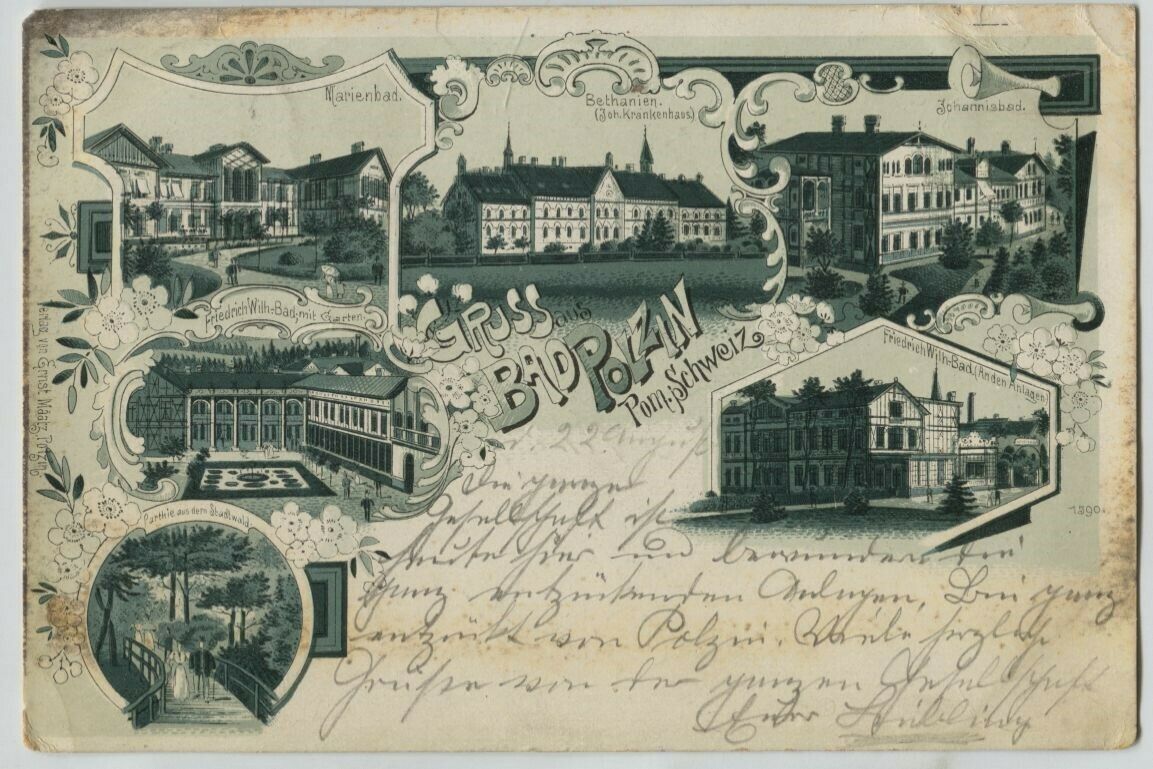 Marienbad.
Bethanien.
(Joh. Krankenhaus)
Johannisbad.
Friedrich Wilh.-Bad, mit Garten.
Gruss aus
Bad Polzin
Pom. Schweiz
Friedrich Wilh-Bad. (An den Anlagen)
Verlag von Ernst Maatz, Polzin
Parthie aus dem Stadtwald
1590.
d. 22 August
Die ganze
Gesellschaft ist
heute hier und bewundern die
ganz entzückenden Anlagen, Bin ganz
entzückt von Polzin. Viele herzlich
Grüße von der ganzen Gesellschaft
Euer